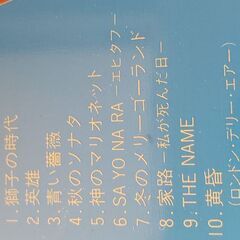 1. 獅子の時代
2. 英雄
3. 青い薔薇
4. 秋のソナタ
5. 神のマリオネット
6. SA YO NA RA ─エピタフ─
7. 冬のメリーゴーランド
8. 家路 ─私が死んだ日─
9. THE NAME
10. 黄昏
(ロンドン・デリー・エアー)